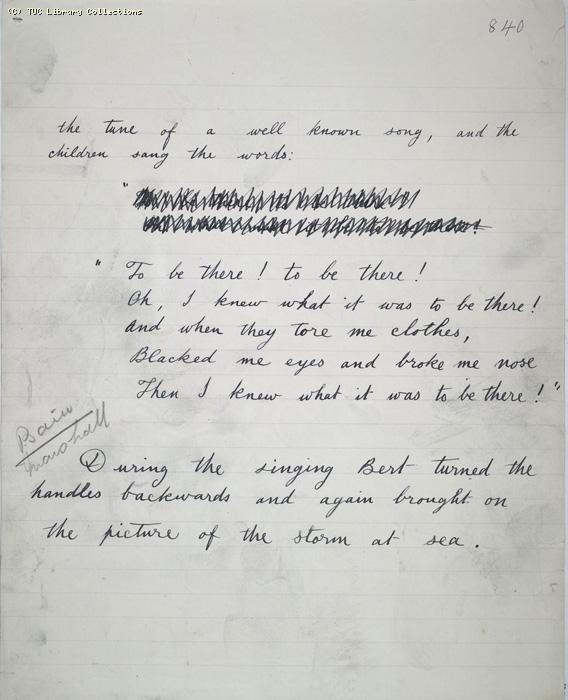 (C) TUC Library Collections
840
the tune of a well known song, and the
children sang the words:
"
" To be there! to be there!
Oh, I knew what it was to be there!
And when they tore me clothes,
Blacked me eyes and broke me nose
Then I knew what it was to be there!"
Bain
Marshall
During the singing Bert turned the
handles backwards and again brought on
the picture of the storm at sea.